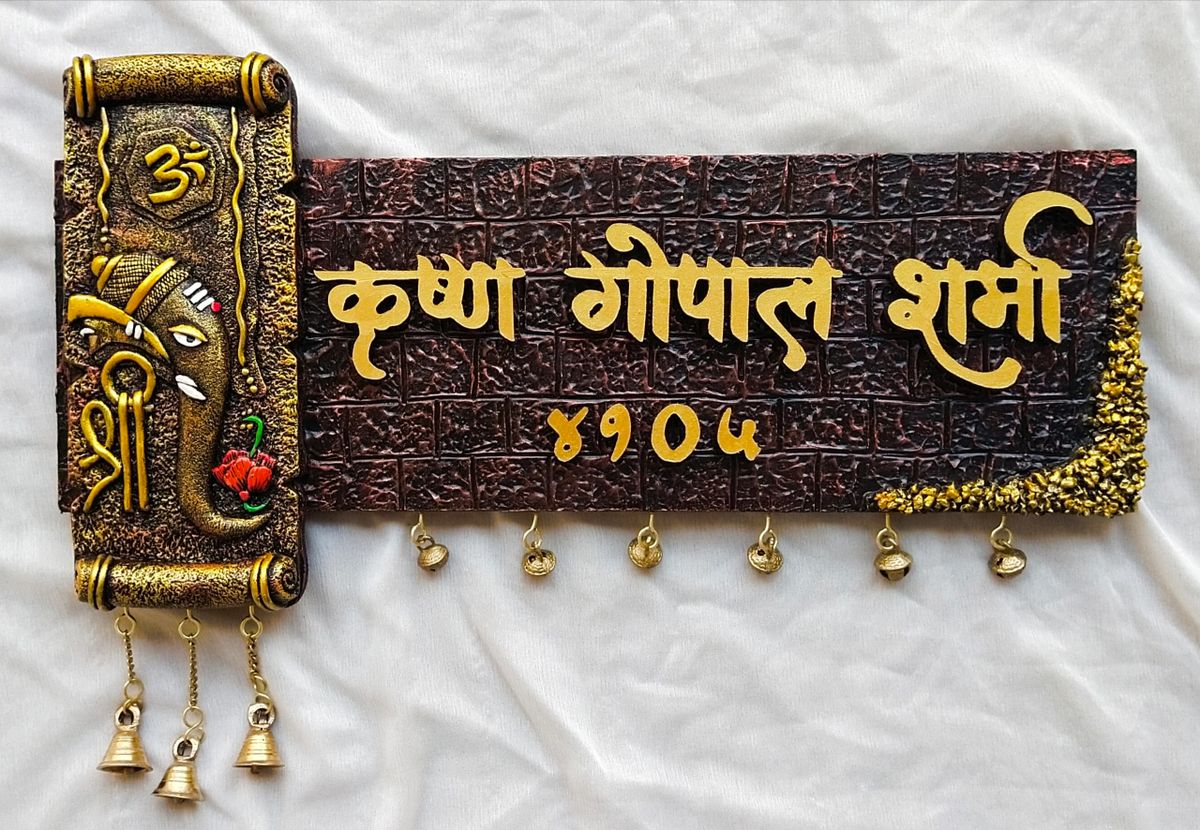 ॐ
श्री
कृष्ण गोपाल शर्मा
४१०५